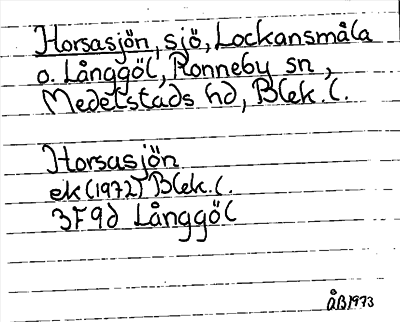 Horsasjön, sjö, Lockansmåla
o. Långgöl, Ronneby sn,
Medelstads hd, Blek. l.
Horsasjön
ek (1972) Blek. l.
3F9d Långgöl
ÅB1973